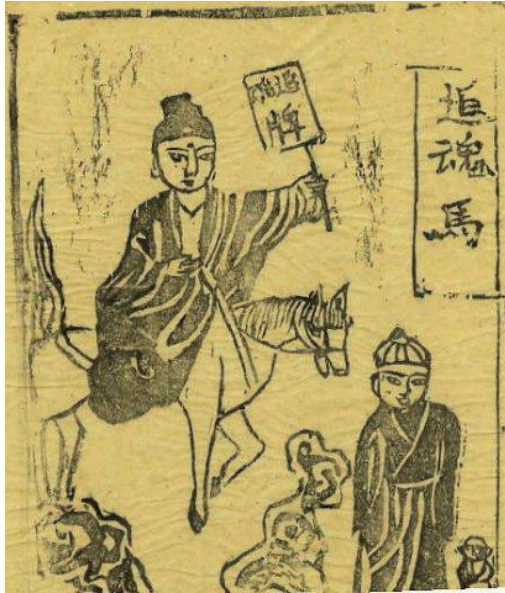 追魂馬
追魂
牌